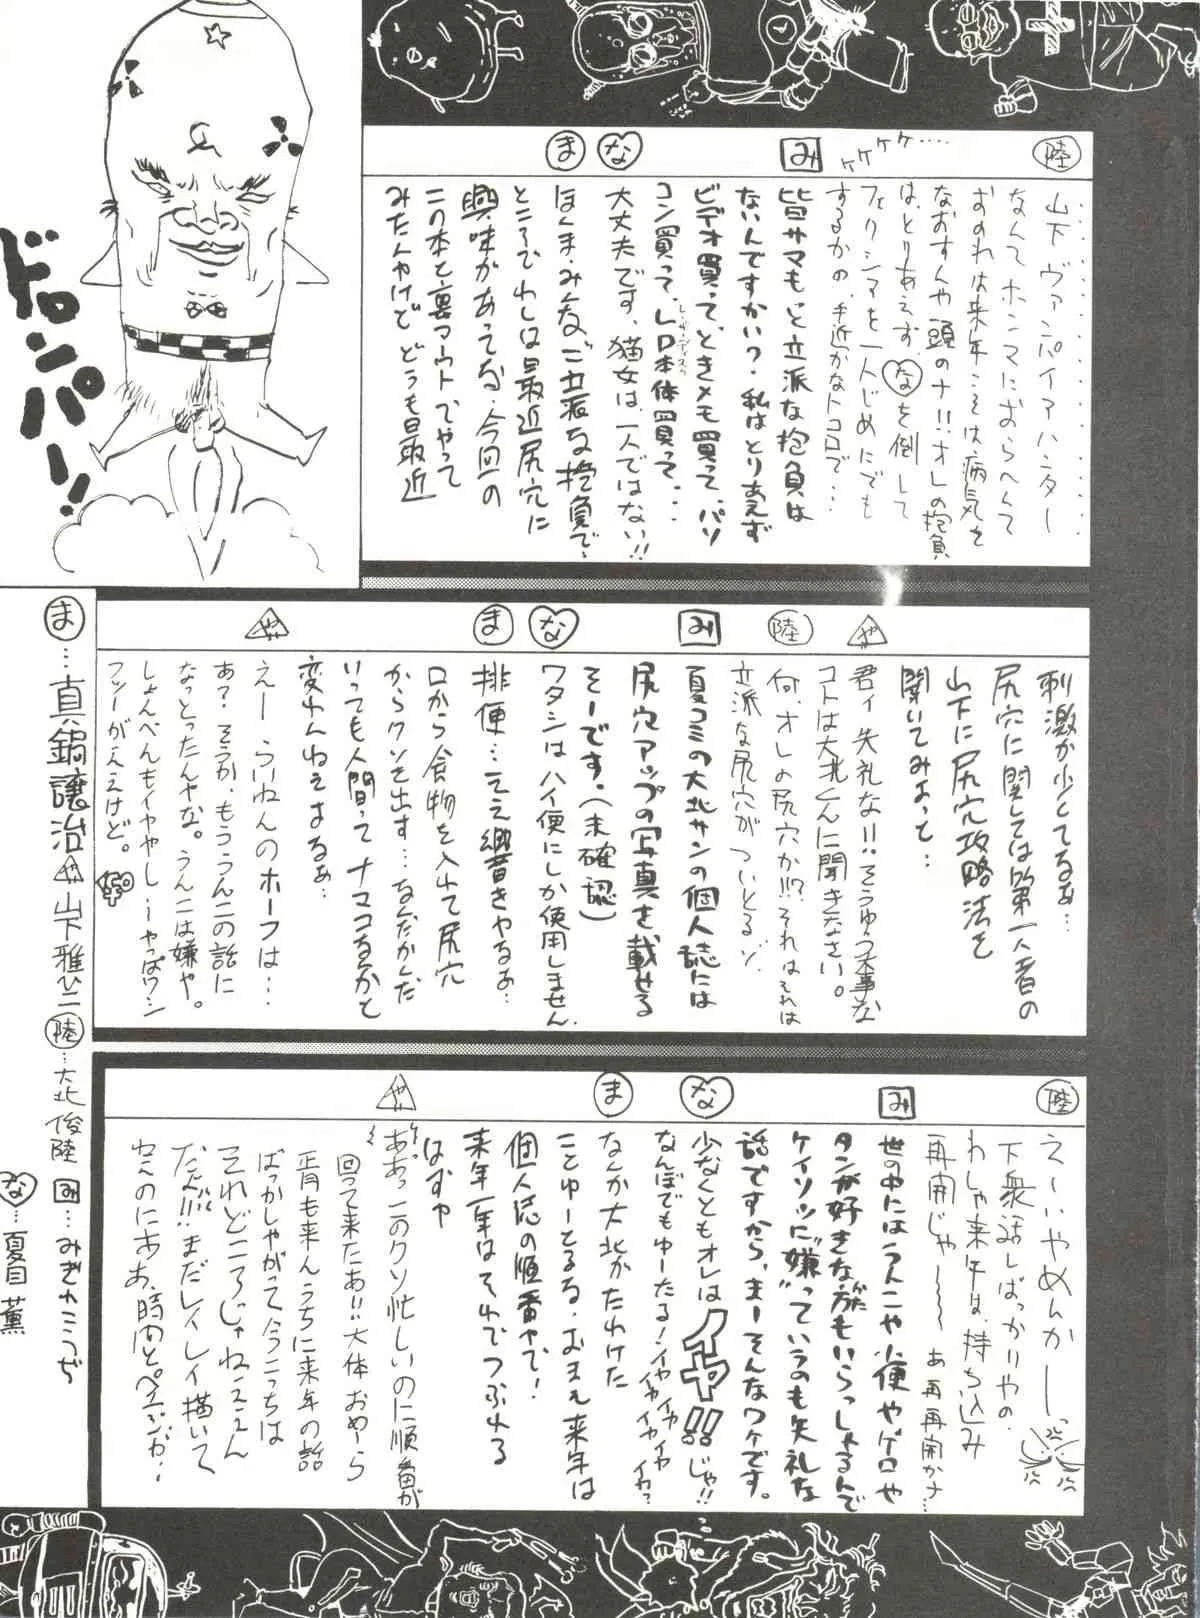 陸
山下ヴァンパイアハンター
なんてホンマにおらへんで
おのれは来年こそは病気を
なおすんや頭のナ!!オレの抱負
は、とりあえず、なを倒して
フェリシアを一人じめにでも
するかの、手近かなトコロで…
ケケケケ….
み
皆サマもっと立派な抱負は
ないんですかい?私はとりあえず
ビデオ買って、ときメモ買って、パソ
コン買って、LD本体買って…
レーザーディスク
な
大丈夫です、猫女は、一人ではない!!
ま
ほんま、みんなご立派な抱負で…
ところでわしは最近尻穴に
興味があってな、今回の
この本と裏マウトでやって
みたんやけど どうも最近
ドロンパー!
刺激が少くてなぁ…
尻穴に関しては第一人者の
山下に尻穴攻略法を
聞いてみよっと…
や
君ィ失礼な!!そうゆう大事な
コトは大北くんに聞きなさい。
陸
何、オレの尻穴か!!?それはそれは
立派な尻穴がついとるゾ.
み
夏コミの大北サンの個人誌には
尻穴アップの写真を載せる
そーです。(未確認)
な
ワタシはハイ便にしか使用しません.
ま
排便…ええ響きやなぁ…
口から食物を入れて尻穴
からクソを出す…なんだかんだ
いっても人間ってナマコなんかと
変わんねえなぁ…
や
えー らいねんのホーフは…
あ?そうか、もううんこの話に
なっとったんやな。うんこは嫌や。
しょんべんもイヤやし…やっぱワシ
フツーがええけど。
陸
え〜いやめんかー
下衆話しばっかりやの
わしゃ来年は、持ち込み
再開じゃ〜〜〜 あ 再再開かナ…
み
世の中にはうんこや小便やゲロや
タンが好きな方もいらっしゃるんで
がた
ケイソツに"嫌"っていうのも失礼な
話ですから、まーそんなワケです。
な
少なくともオレはイヤ!!じゃ!!
なんぼでもゆーたる!イヤイヤイヤ
ま
なんか大北がたわけた
ことゆーとるな.おまえ来年は
個人誌の順番やで!
来年一年はそれでつぶれる
はずや
や
ああっこのクソ忙しいのに順番が
回って来たぁ!!大体おめーら
正月も来んうちに来年の話
ばっかしやがって今こっちは
それどころじゃねええん
だよ!!まだレイレイ描いて
ねーのにああ、時間とページが…
ま…真鍋譲治 や 山下雅ひこ 陸…大北俊陸 み…みぎわこうぢ
な…夏目薫